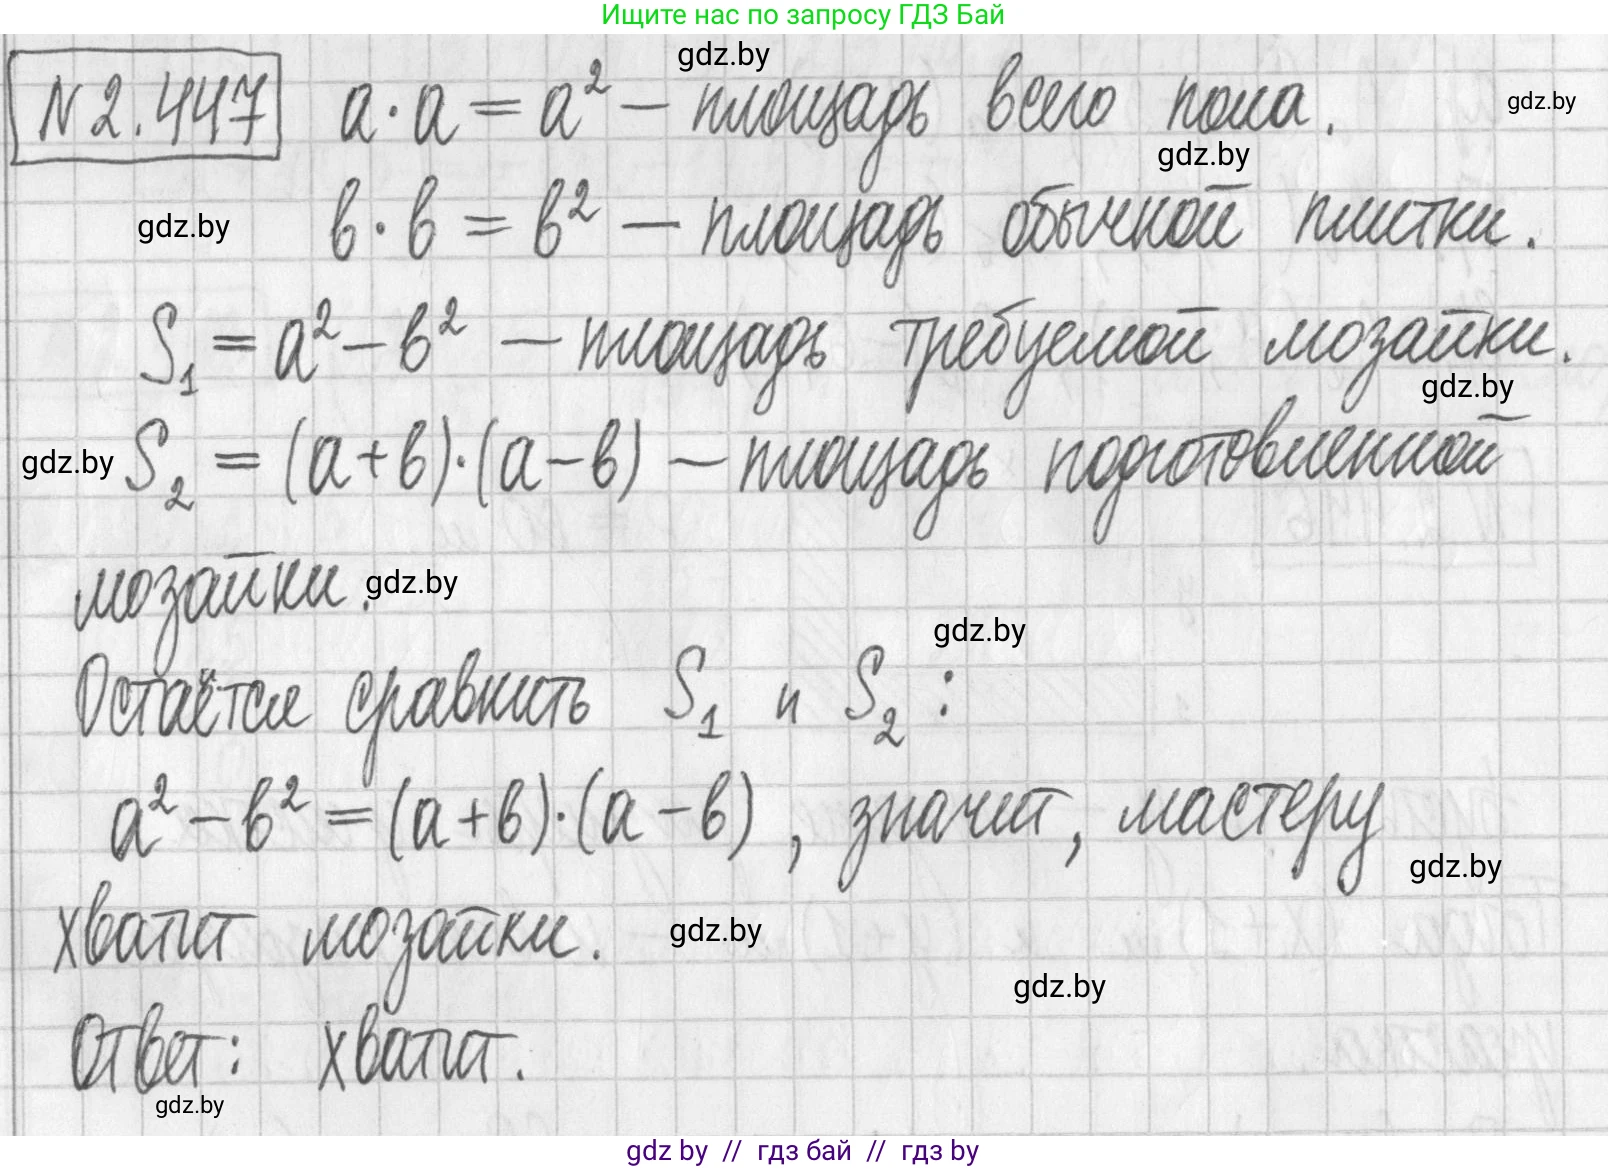 Ищите нас по запросу ГДЗ Бай
gdz.by
№2.447 a·a = a² — площадь всего пола.
gdz.by
gdz.by
gdz.by
в·в = в² — площадь обычной плитки.
S₁ = a² – в² — площадь требуемой мозайки.
gdz.by
gdz.by
S₂ = (a+в)·(a–в) — площадь подготовленной
мозайки.
gdz.by
gdz.by
Остаётся сравнить S₁ и S₂:
a² – в² = (a+в)·(a–в), значит, мастеру
gdz.by
хватит мозайки.
gdz.by
gdz.by
Ответ: хватит.
gdz.by
gdz by // гдз бай // гдз by